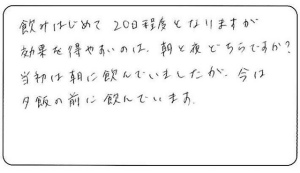 飲みはじめて20日程度となりますが
効果を得やすいのは、朝と夜どちらですか?
当初は朝に飲んでいましたが、今は
夕飯の前に飲んでいます。